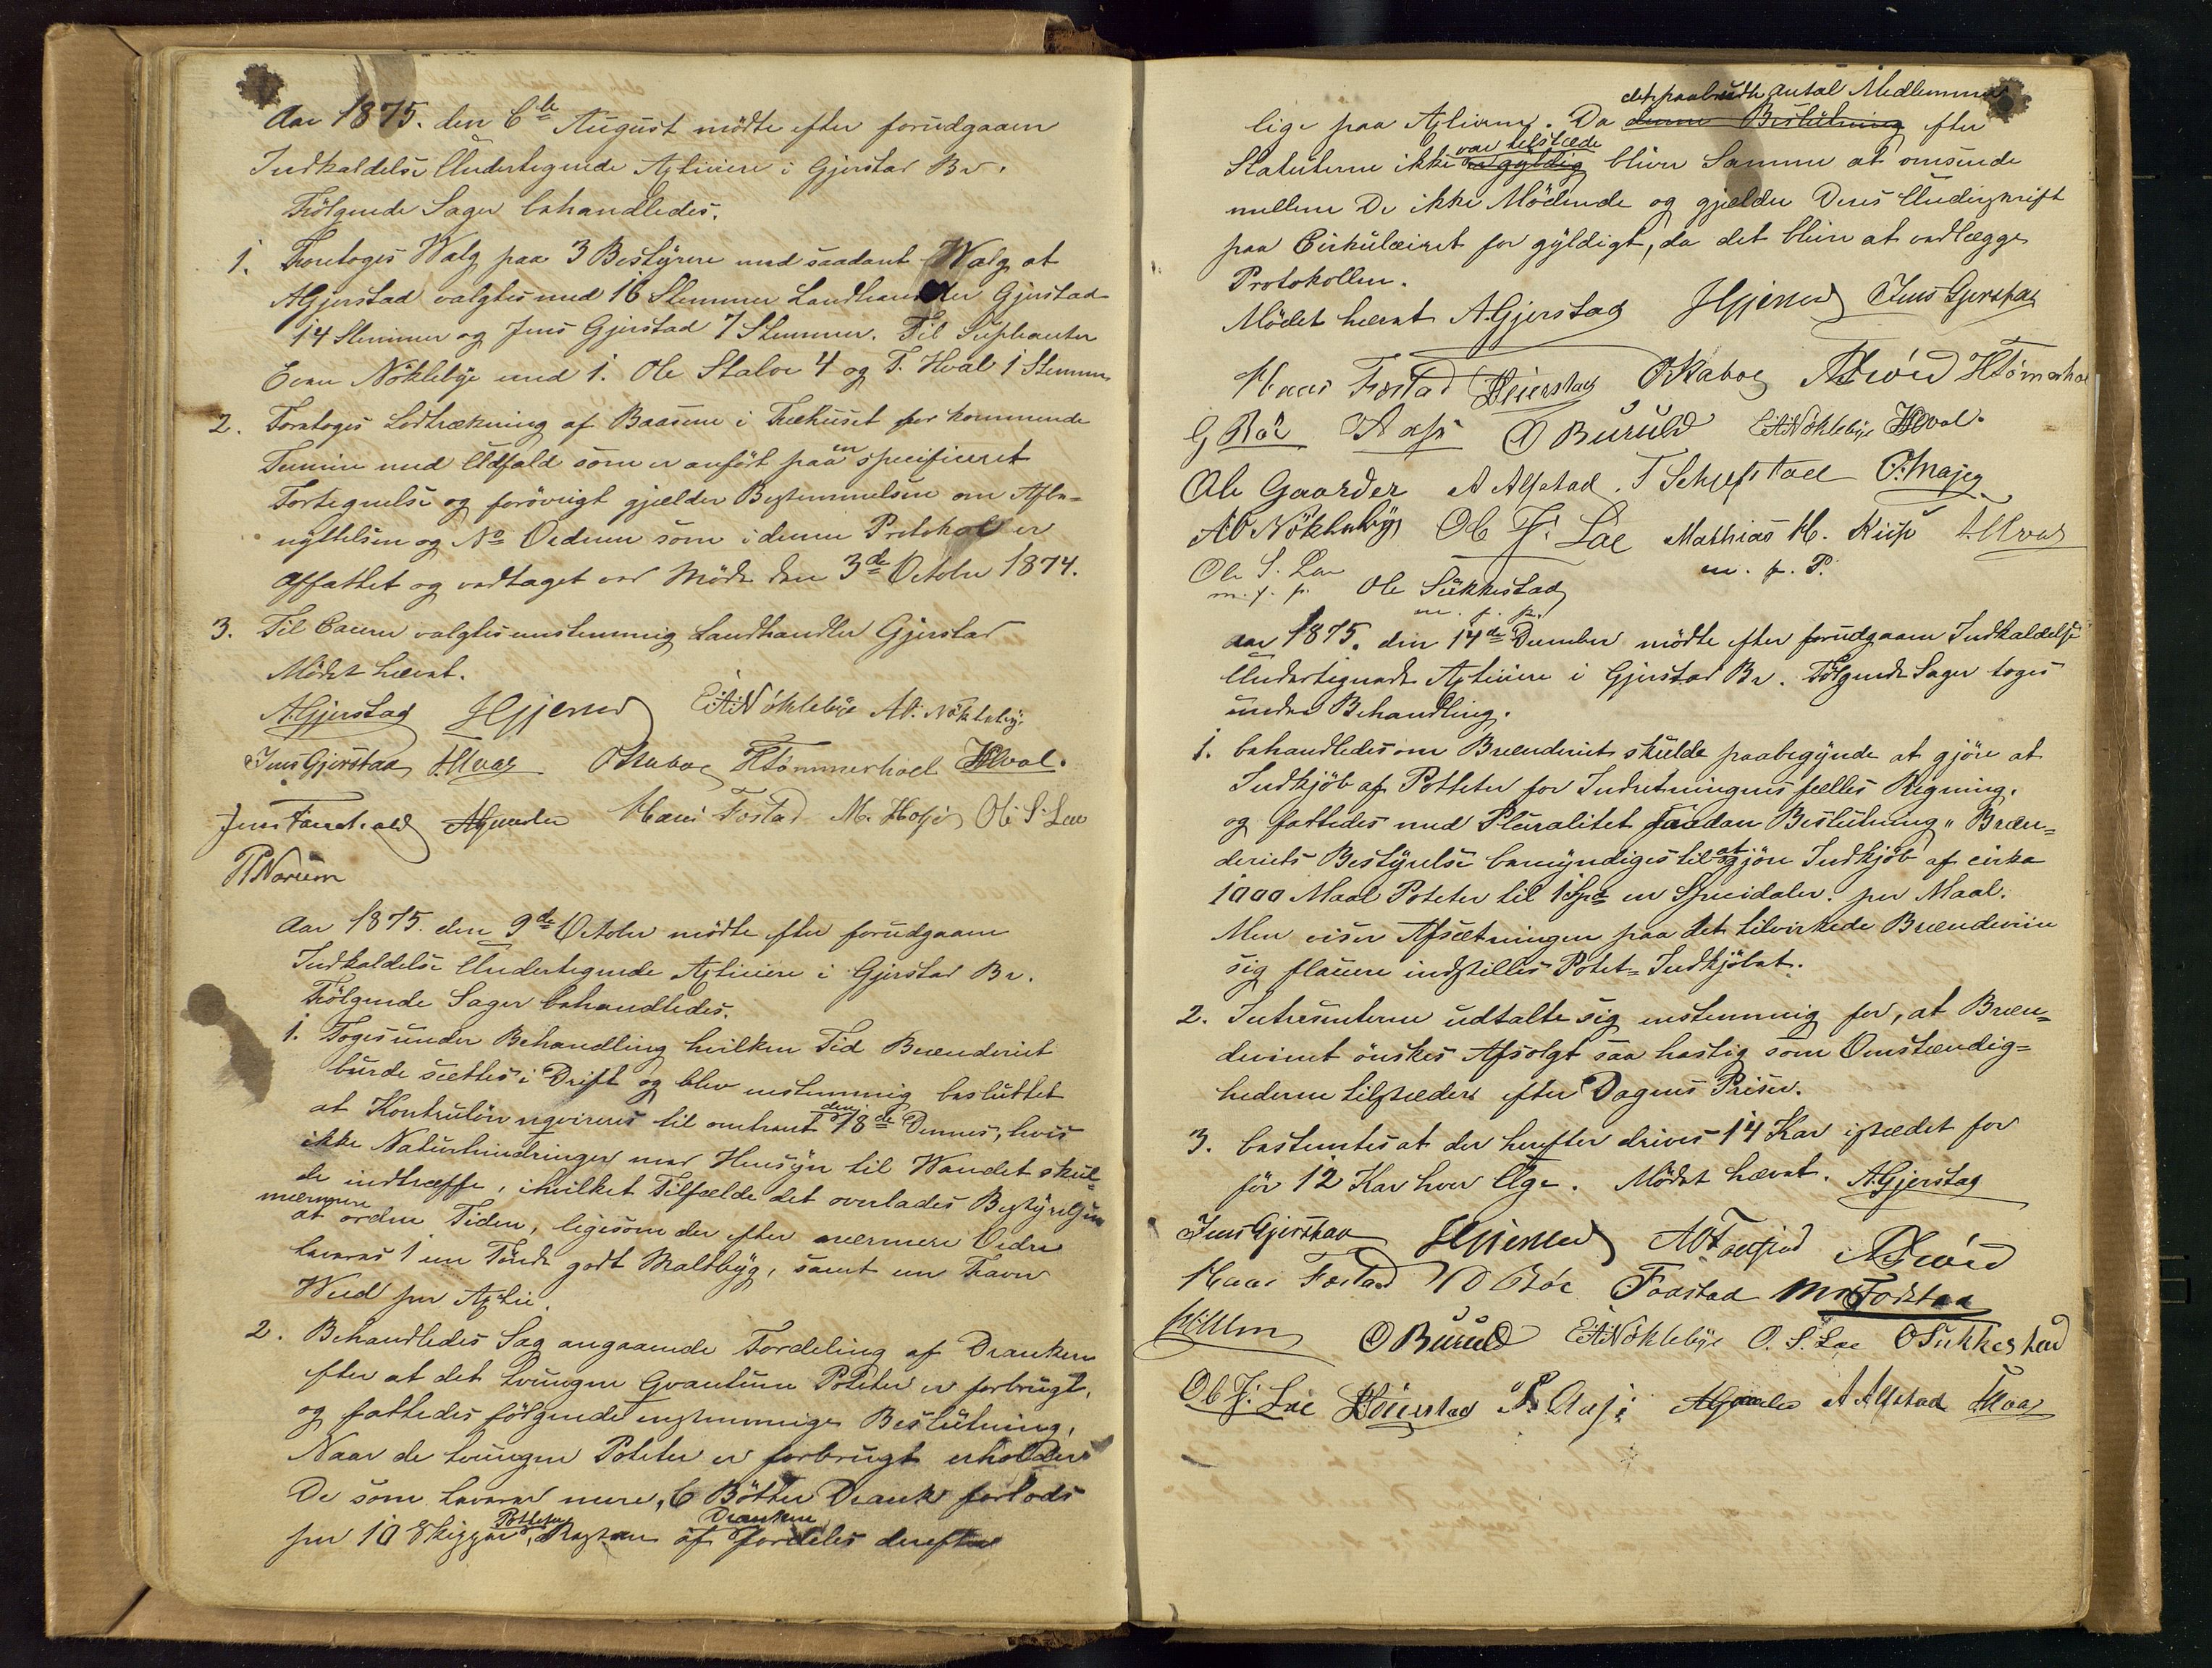 Aar 1875. den 6te August mödte efter forudgaaen
Indkaldelse Undertegnede Aktiiere i Gjerstad Br.
Fölgende Sager behandledes.
1. Foretoges Walg paa 3 Bestyrere med saadant Walg at
A Gjerstad valgtes med 16 Stemmer Landhandler Gjerstad
14 Stemmer og Jens Gjerstad 7 Stemmer. Til Supleanter
Even Nöklebye med 1. Ole Stalve 4 og T. Hval 1 Stemme
2. Foretoges Lodtrækning af Baasene i Fæhuset for kommende
Termin med Udfald som er anfört paa en specificeret
Fortegnelse og forövrigt gjælder Bestemmelsen om Afbe-
nyttelsen og No Ordenen som i denne Protokol er
affattet og vedtaget ved Möde den 3de October 1874.
3. Til Caserer valgtes enstemmig Landhandler Gjerstad
Mödet hævet.
A. Gjerstad HGjerstad E.A. Nöklebye A.O. Nöklebye
Jens Gjerstad T. Hval O Rabog HTömmerhoel HHval.
Hans Fostad M. Hofse Ole S. Lee
P Narum
Aar 1875. den 9de October mödte efter forudgaaen
Indkaldelse Undertegnede Aktiiere i Gjerstad Br.
Fölgende Sager behandledes.
1. Toges under Behandling hvilken Tid Brænderiet
burde sættes i Drift og blev enstemmig besluttet
at Kontrulön reqvireres til omtrent den 18de Dennes, hvis
ikke Naturhindringer med Hensyn til Wandet skul-
de indtræffe, i hvilket Tilfælde det overlades Bestyrelsen
nærmere
at ordne Tiden, ligesom der efter nærmere Ordre
leveres 1 en Tönde godt Maltbyg, samt en Favn
Wed per Aktie.
2. Behandledes Sag angaaende Fordeling af Dranken
efter at det tvungne Qvantum Poteter er forbrugt,
og fattedes fölgende enstemmige Beslutning,
Naar de tvungne Poteter er forbrugt erholder
De som leverer mere, 6 Bötter Drank forlods
Poteter Dranken
per 10 Skjæpper, Resten af fordeles derefter
det paabudte Antal Medlemmer
lige paa Aktierne. Da denne Beslutning efter
var tilstæde
Statuterne ikke er gyldig bliver Samme at omsende
mellem De ikke Mödende og gjælder Deres Underskrift
paa Cirkulæiret for gyldigt, da det bliver at vedlægge
Protokollen.
Mödet hævet A. Gjerstad HGjerstad Jens Gjerstad
Hans Fostad O Rabog HTömmerhoel
G Böe O Buruld E.A. Nöklebye HHval.
Ole Gaarder A Alfstad T Schjefstad
A.O Nöklebye Ole J. Lee Mathias H. Kiip T. Hval
Ole S. Lee m. p. P.
m. f. p. Ole Sukkestad
m. f. p.
Aar 1875. den 14de December mödte efter forudgaaen Indkaldelse
Undertegnede Aktiiere i Gjerstad Br. Fölgende Sager toges
under Behandling.
1. behandledes om Brænderiet skulde paabegynde at gjöre at
Indkjöb af Potteter for Indretningens fælles Regning.
og fattedes med Pluralitet saadan Beslutning "Bræn-
deriets Bestyrelse bemyndiges til at gjöre Indkjöb af cirka
1000 Maal Poteter til 1 Spd en Speciedaler. per Maal.
Men viser Afsætningen paa det tilvirkede Brændeviin
sig flauere indstilles Potet-Indkjöbet.
2. Intresenterne udtalte sig enstemmig for, at Bræn-
devinet önskes Afsolgt saa hastig som Omstændig-
hederne tilsteder efter Dagens Priser.
3. bestemtes at der herefter drives 14 Kar istedet for
för 12 Kar hver Uge. Mödet hævet. A. Gjerstad
Jens Gjerstad HGjerstad
Hans Fostad Böe Faastad M Fodstad
O Buruld E.A. Nöklebye O. S. Lee O Sukkestad
Ole J. Lee A Alfstad T. Hval